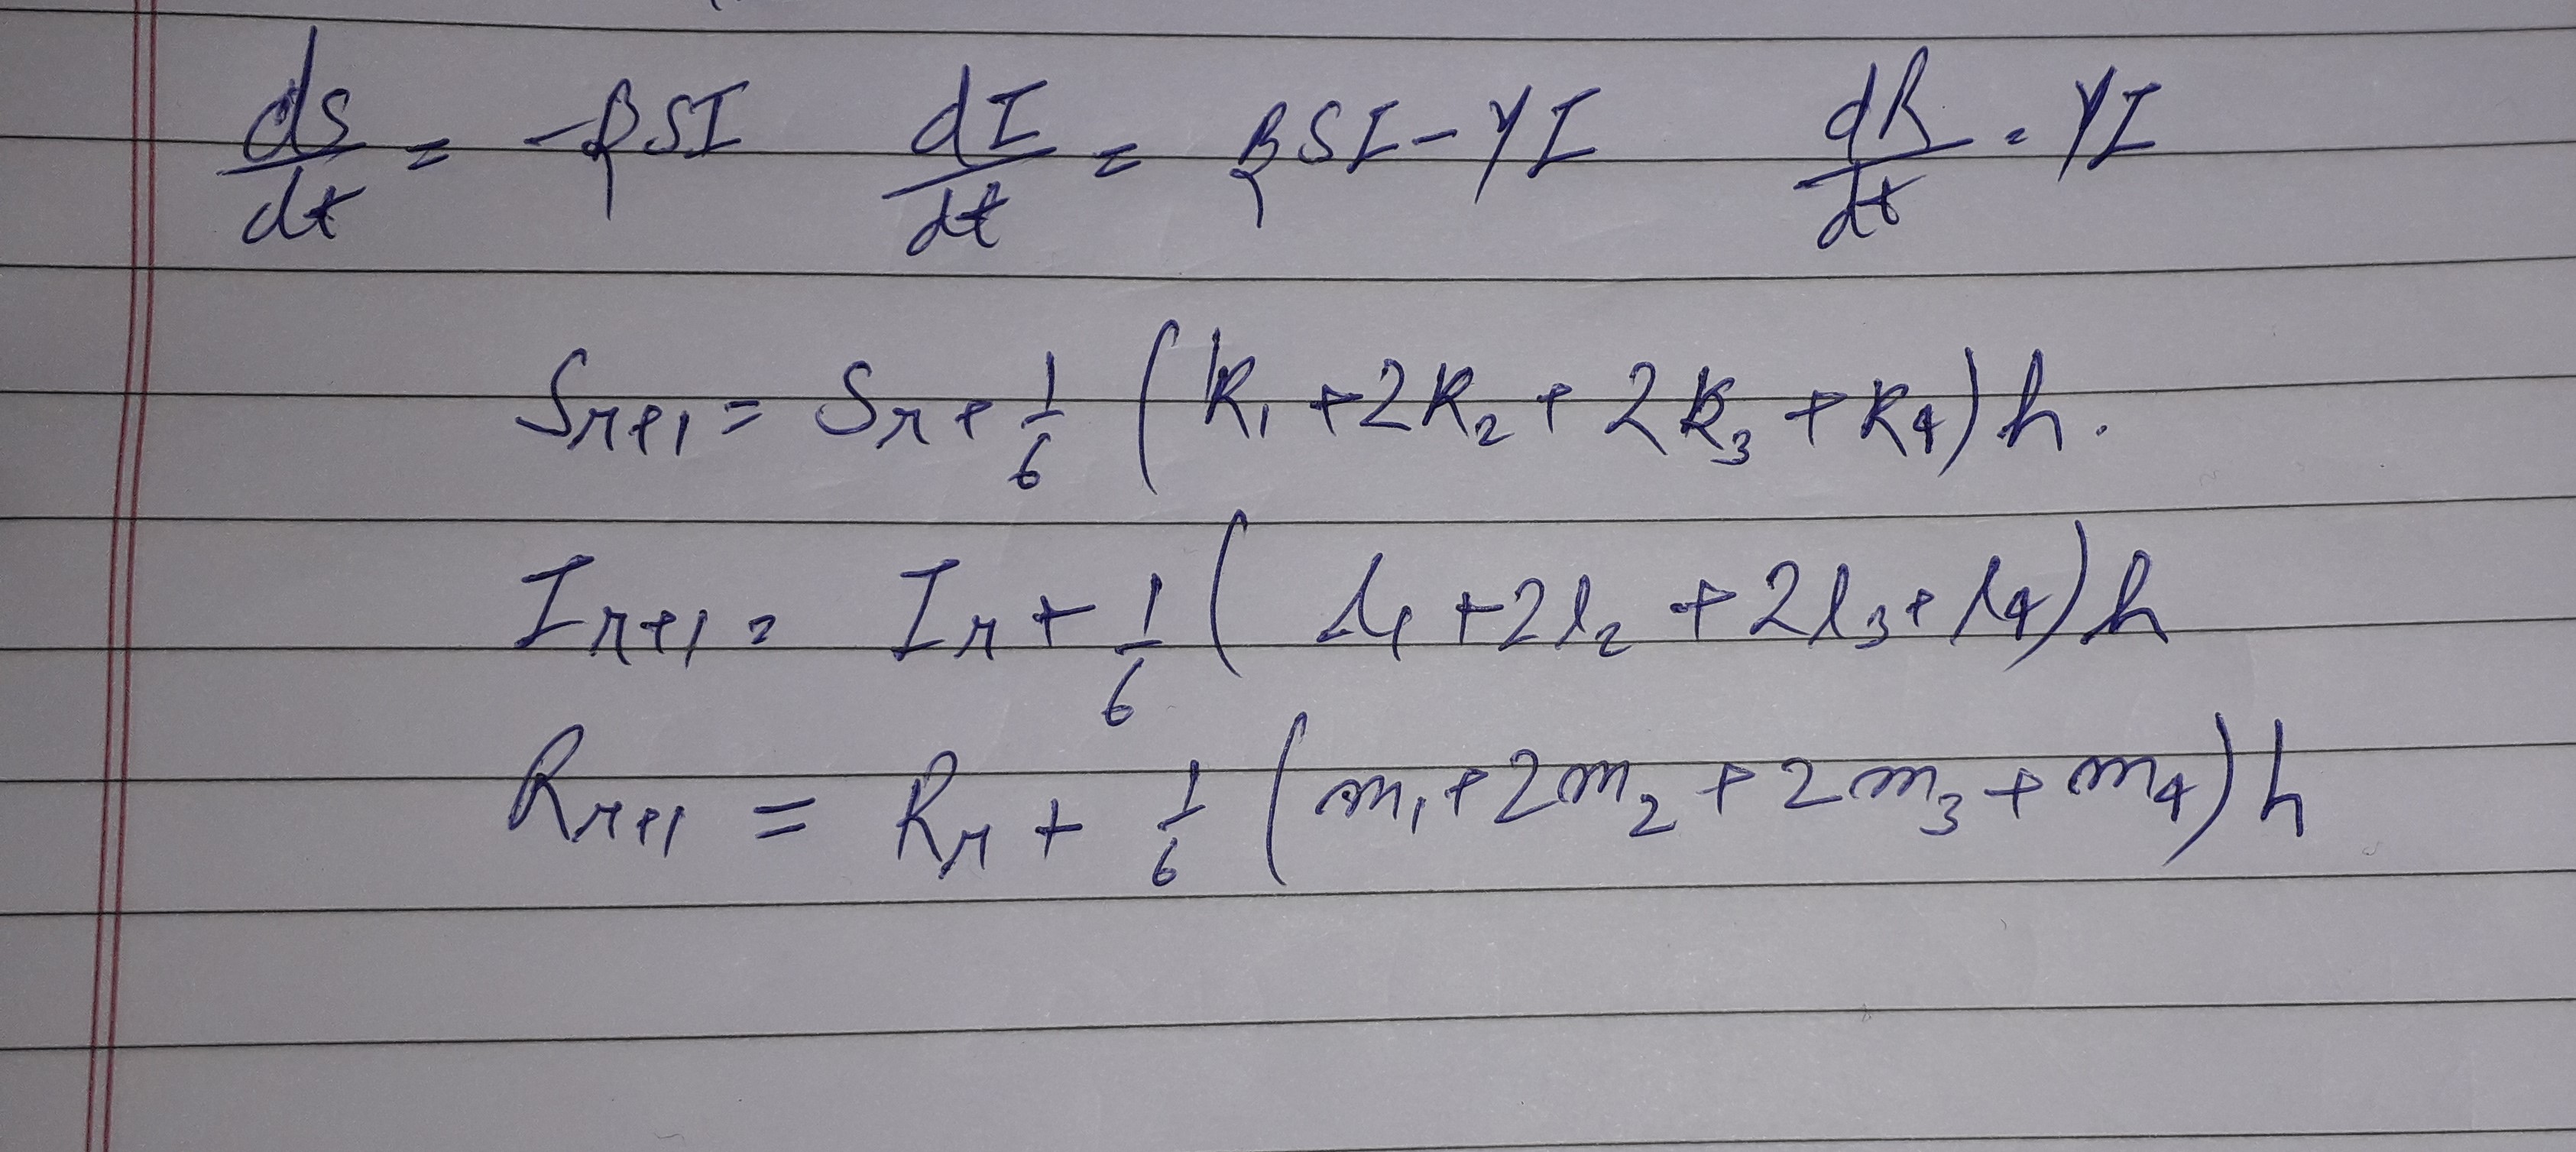 ds/dt = -βSI   dI/dt = βSI - γI   dR/dt = γI
Sr+1 = Sr + 1/6 (k1 + 2k2 + 2k3 + k4)h.
Ir+1 = Ir + 1/6 (l1 + 2l2 + 2l3 + l4)h
Rr+1 = Rr + 1/6 (m1 + 2m2 + 2m3 + m4)h